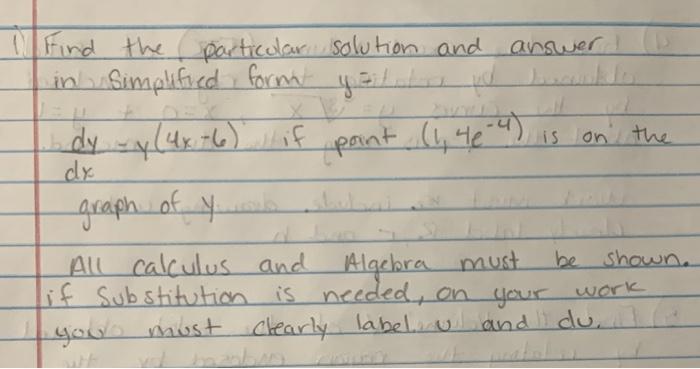 1) Find the particular solution and answer
in simplified form y=
dy/dx = y(4x-6) if point (1, 4e^-4) is on the
graph of y
All calculus and Algebra must be shown.
if substitution is needed, on your work
you must clearly label u and du.